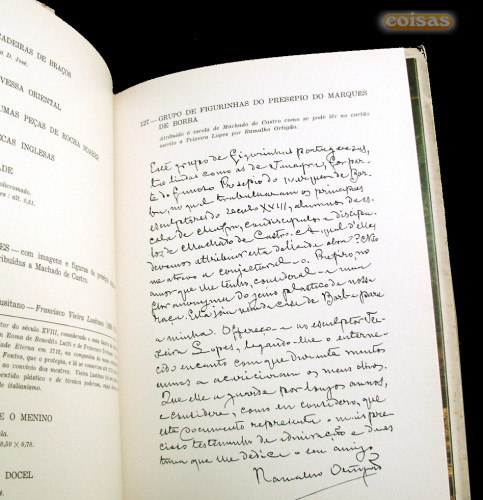 coisas
ADEIRAS DE BRAÇOS
o D. José.
VESSA ORIENTAL
UMAS PEÇAS DE ROCHA SOARES
ÇAS INGLESAS
DADE
: alt. 0,51.
ES — com imagens e figuras de
tribuídas a Machado de Castro.
usitano — Francisco Vieira Lusitano
tor do século XVIII, considerado
Roma de Benedito Lutti e de Francisco
dade Eterna em 1712, na companhia
Fontes, que o protegia, e lá se
ao convívio dos mestres. Vieira Lusitano
entido plástico e de técnica poderosa,
de italianismo.
E O MENINO
0,50 × 0,70.
DOCEL
127 — GRUPO DE FIGURINHAS DO PRESÉPIO DO MARQUÊS
DE BORBA
Atribuído à escola de Machado de Castro como se pode ler no cartão
escrito a Teixeira Lopes por Ramalho Ortigão.
Este grupo de figurinhas portuguezas,
tão lindas como as de Tanagra, fez par-
te do famoso Presepio do marquez de Bor-
ba, no qual trabalharam os principaes
esculptores do seculo XVIII, alumnos da es-
cola de Mafra, condiscipulos e discipu-
los de Machado de Castro. A qual d'elles
devemos attribuir esta delicada obra? Não
me atrevo a conjectural-o. Prefiro, no
amor que lhe tenho, consideral-a uma
flor anonyma do genio plastico da nossa
raça. Ella só saiu da Casa de Borba para
a minha. Offereço-a ao esculptor Tei-
xeira Lopes, legando-lhe o interne-
cido encanto com que durante muitos
annos a acariciaram os meus olhos.
Que elle a guarde por longos annos,
e considere, como eu considero, que
este documento representa o mais pre-
cioso testemunho de admiração e d'es-
tima que lhe dedica o seu amigo
Ramalho Ortigão